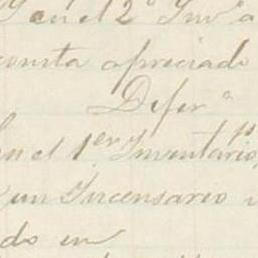 en el 2º Inv.º a
consta apreciado
Difer.ª
en el 1er Inventario, p
un Incensario
do en